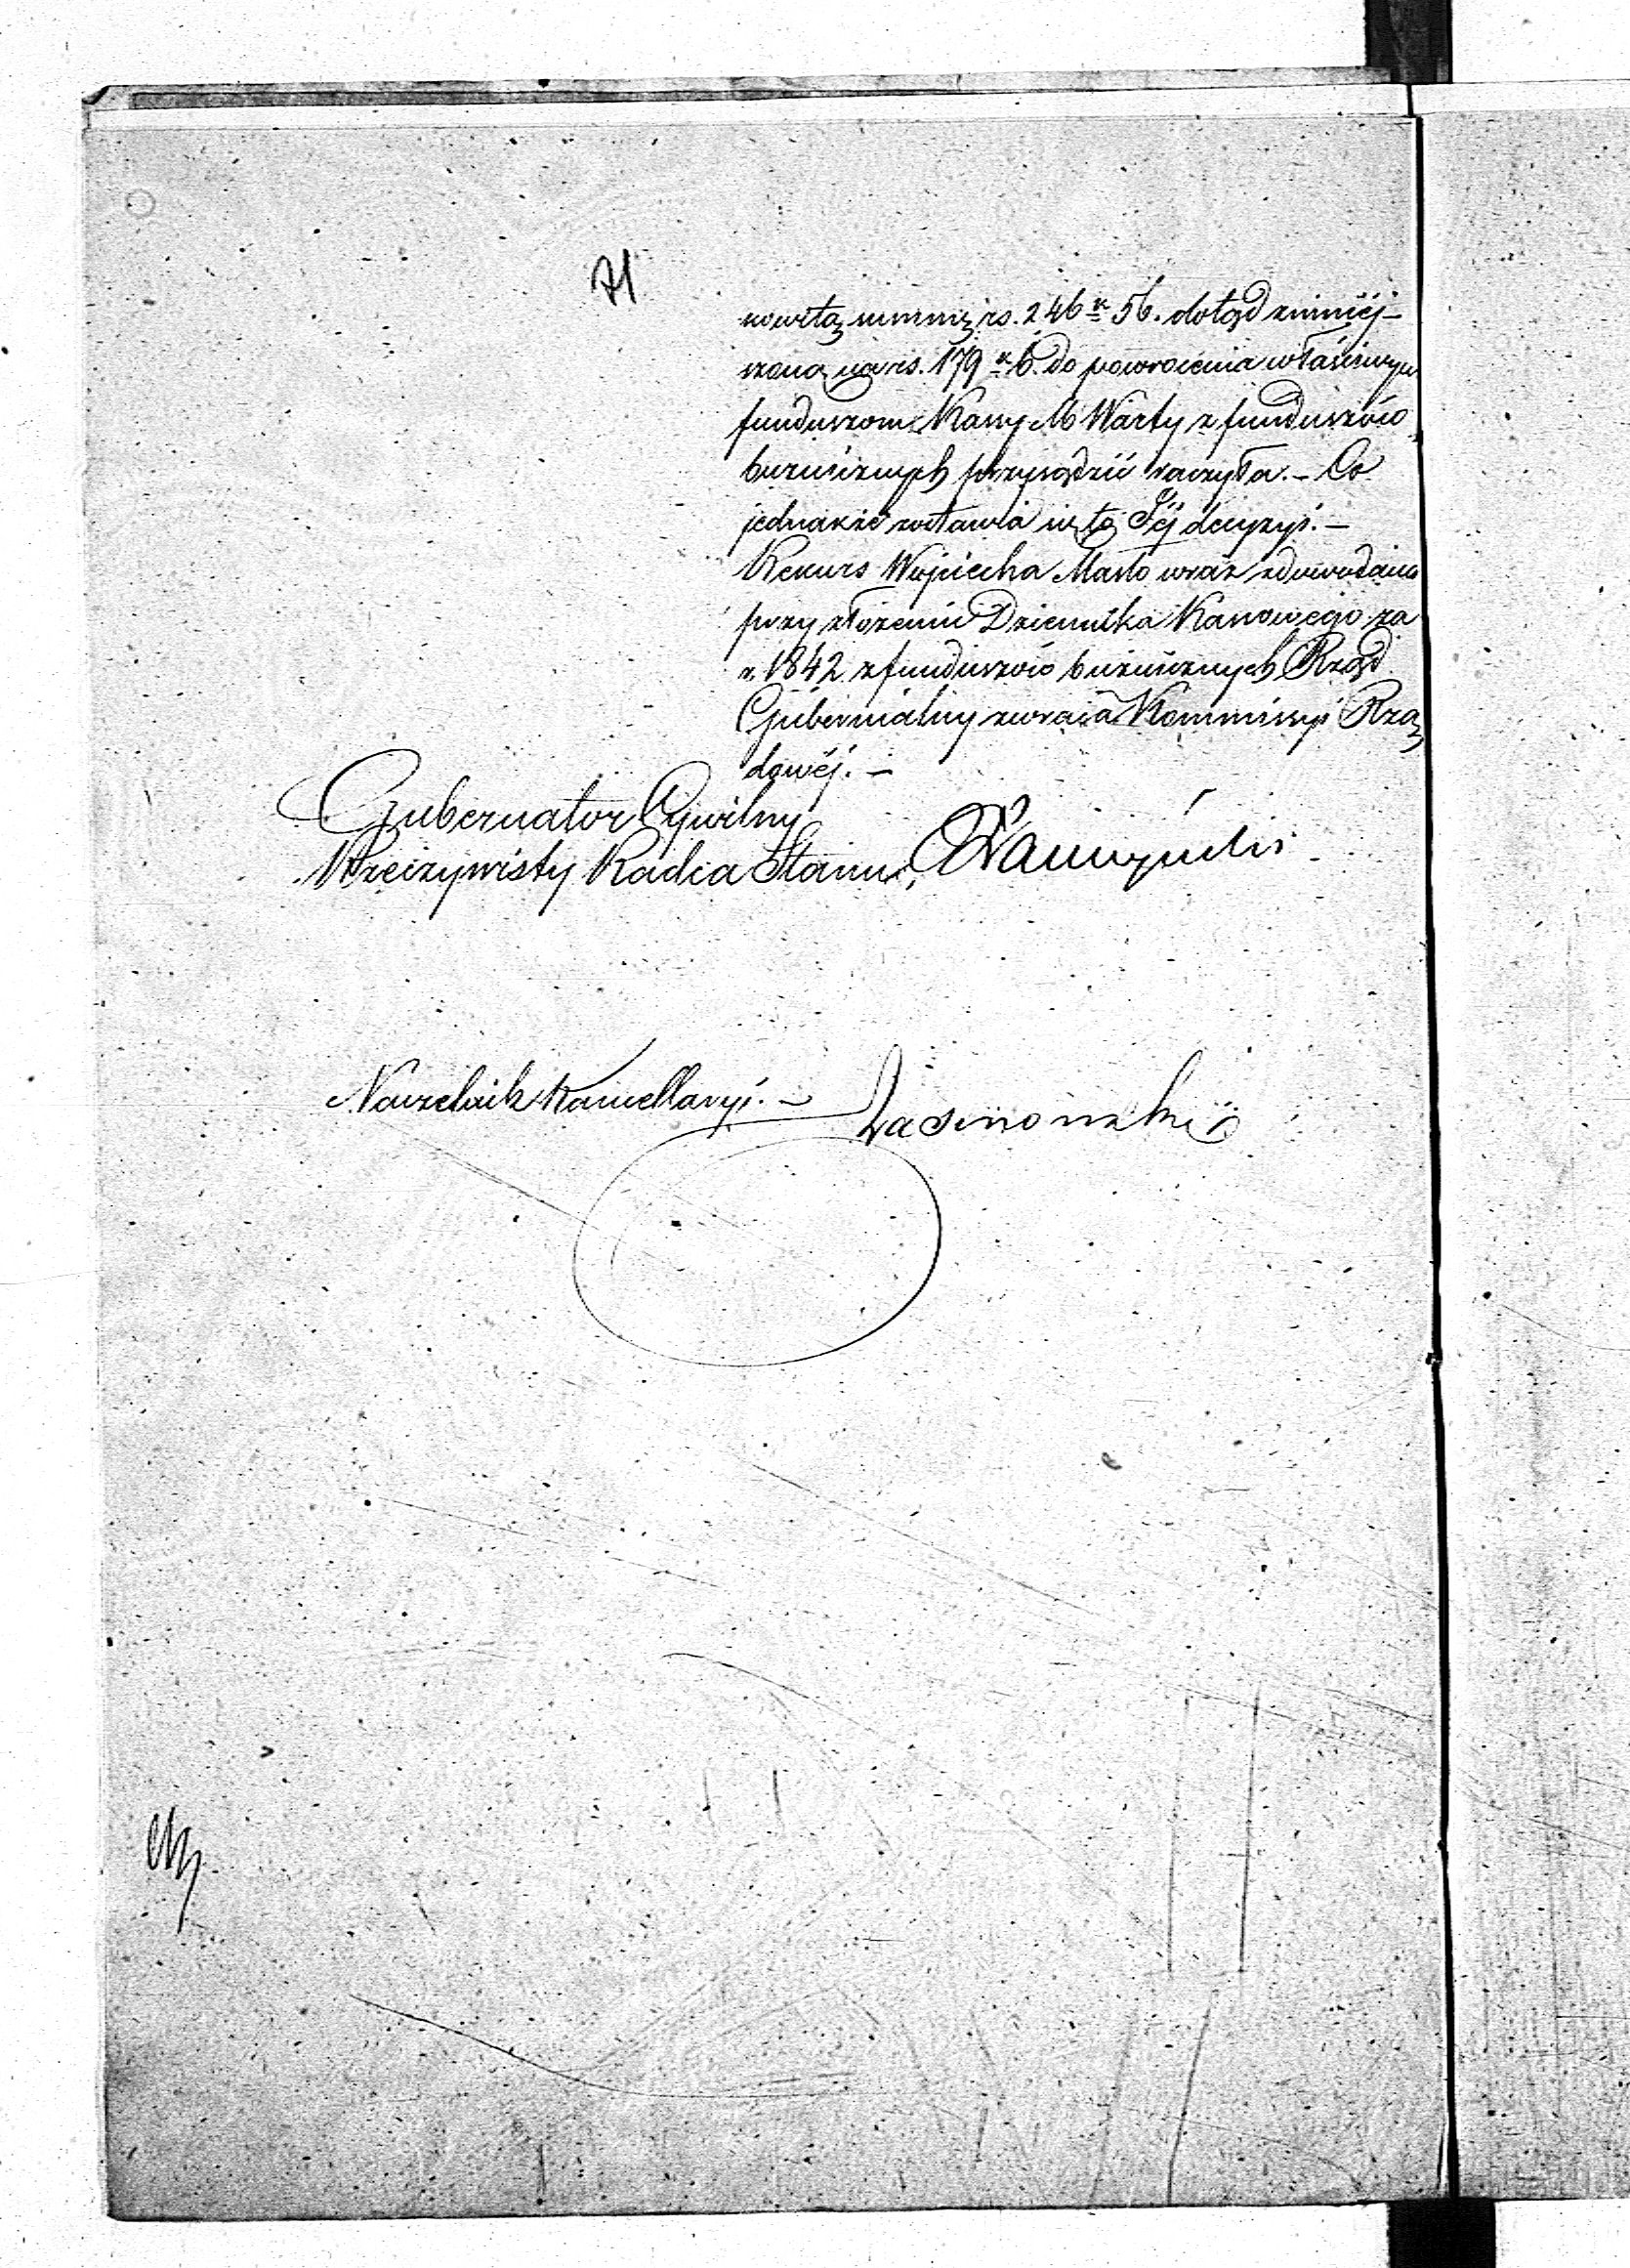 71
kowitą summę rs. 246 k 56. dotąd zmniéj-
szoną na rs. 179 k 6. do powrócenia właściwym
funduszom Kassy M Warty z funduszów
bużnicznych przysądzić raczyła. — Co
jednakże zostawia Jéj decyzyi. —
Rekurs Wojciecha Masło wraz z dowodami
przy złożeniu Dziennika Kassowego za
r. 1842 z funduszów bużnicznych Rząd
Gubernialny zwraca Kommissyi Rzą
dowéj. —
Gubernator Cywilny
Rzeczywisty Radca Stanu,
Naczelnik Kancellaryi. —